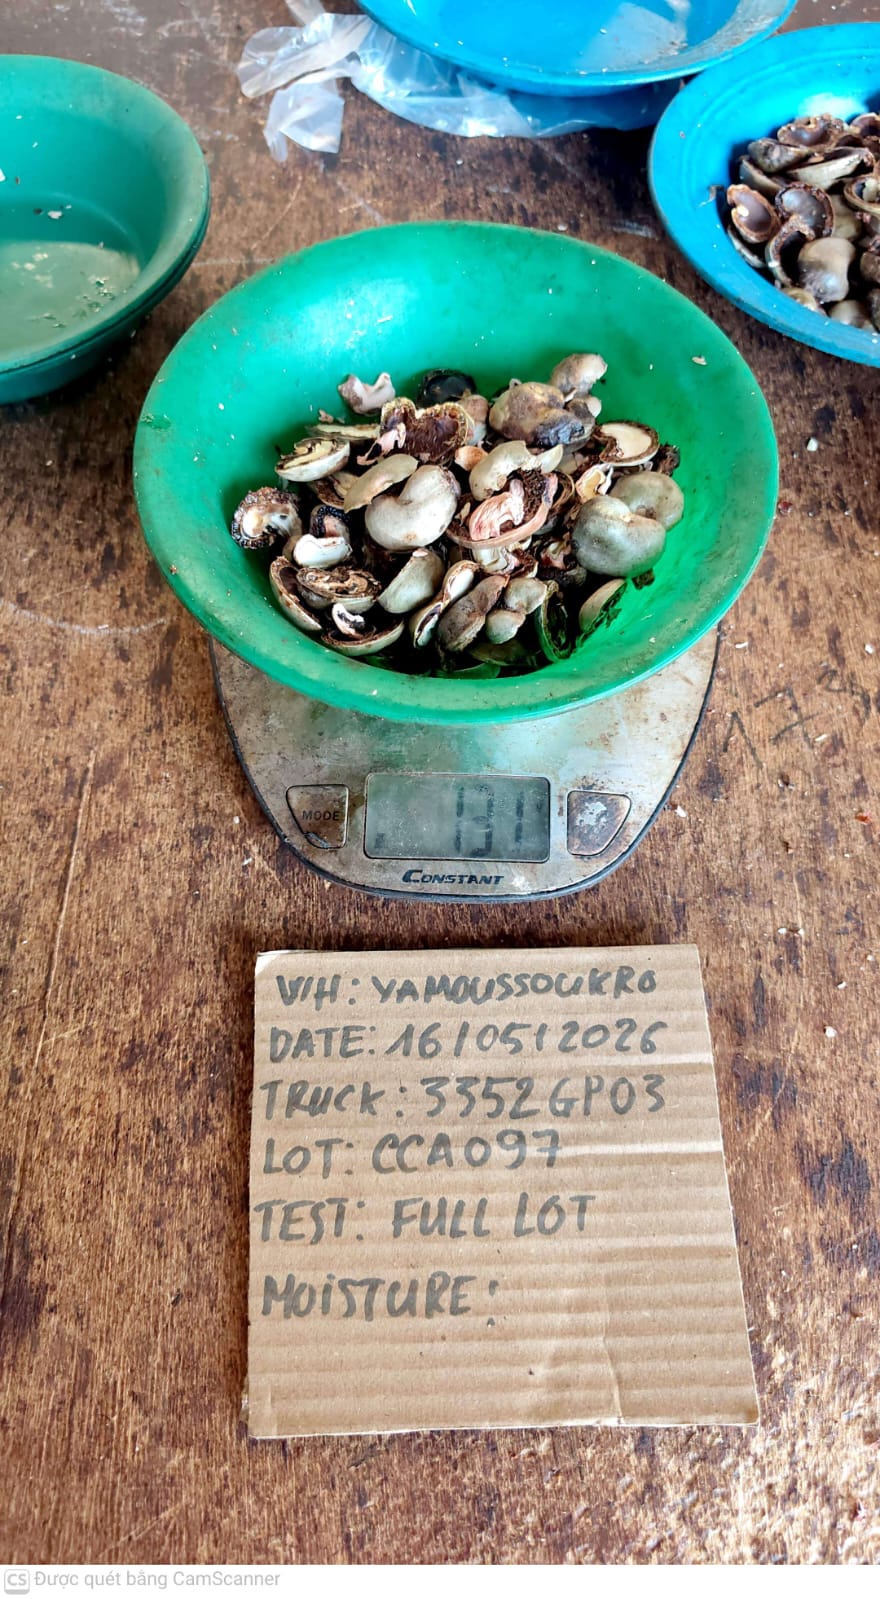 MODE
131
CONSTANT
W/H: YAMOUSSOUKRO
DATE: 16/05/2026
TRUCK: 3352GP03
LOT: CCA097
TEST: FULL LOT
MOISTURE:
CS Được quét bằng CamScanner